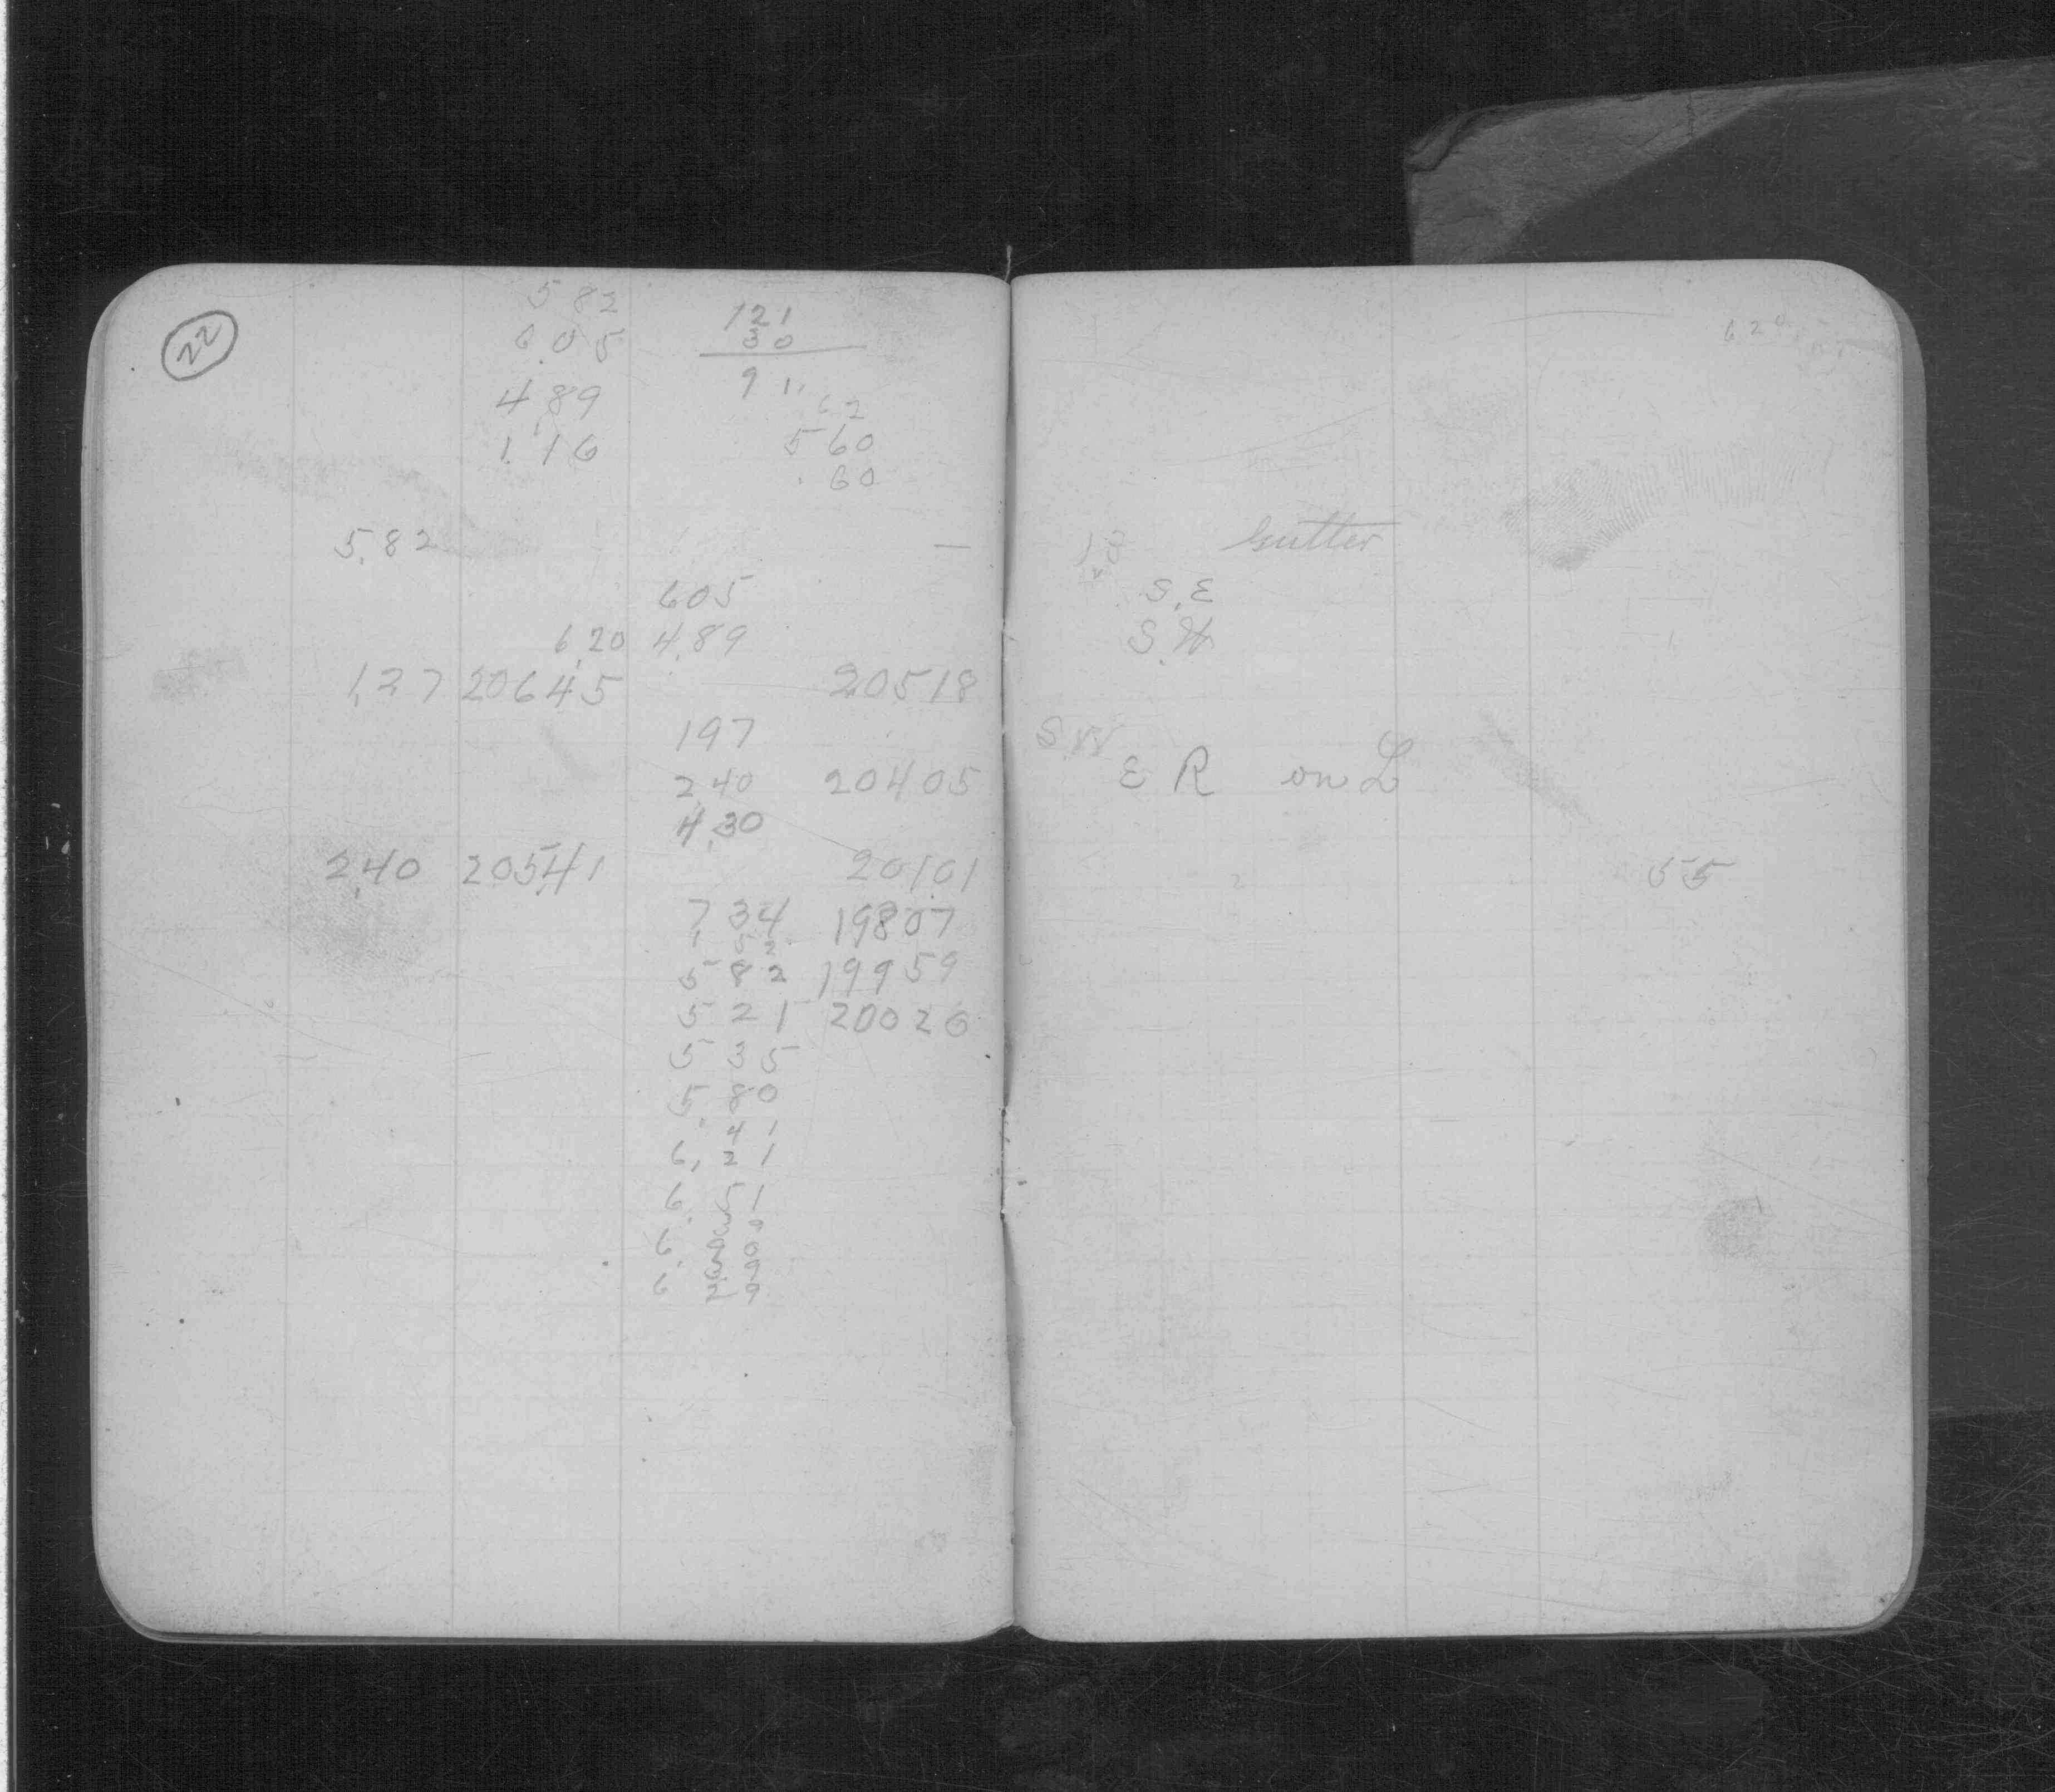 22
5 82
6.05
4 89
1.16
121
30
9 1
62
5 60
.60
5.82
605
6.20 4.89
1.27 20645 20518
197
2.40 20405
4.30
2.40 20541 20101
7 34 19807
1 52
5 82 19959
5 21 20026
5 35
5 80
4 1
6, 21
6. 51
6 29
620
Gutter
S.E
S.W
S W
E R on L
55